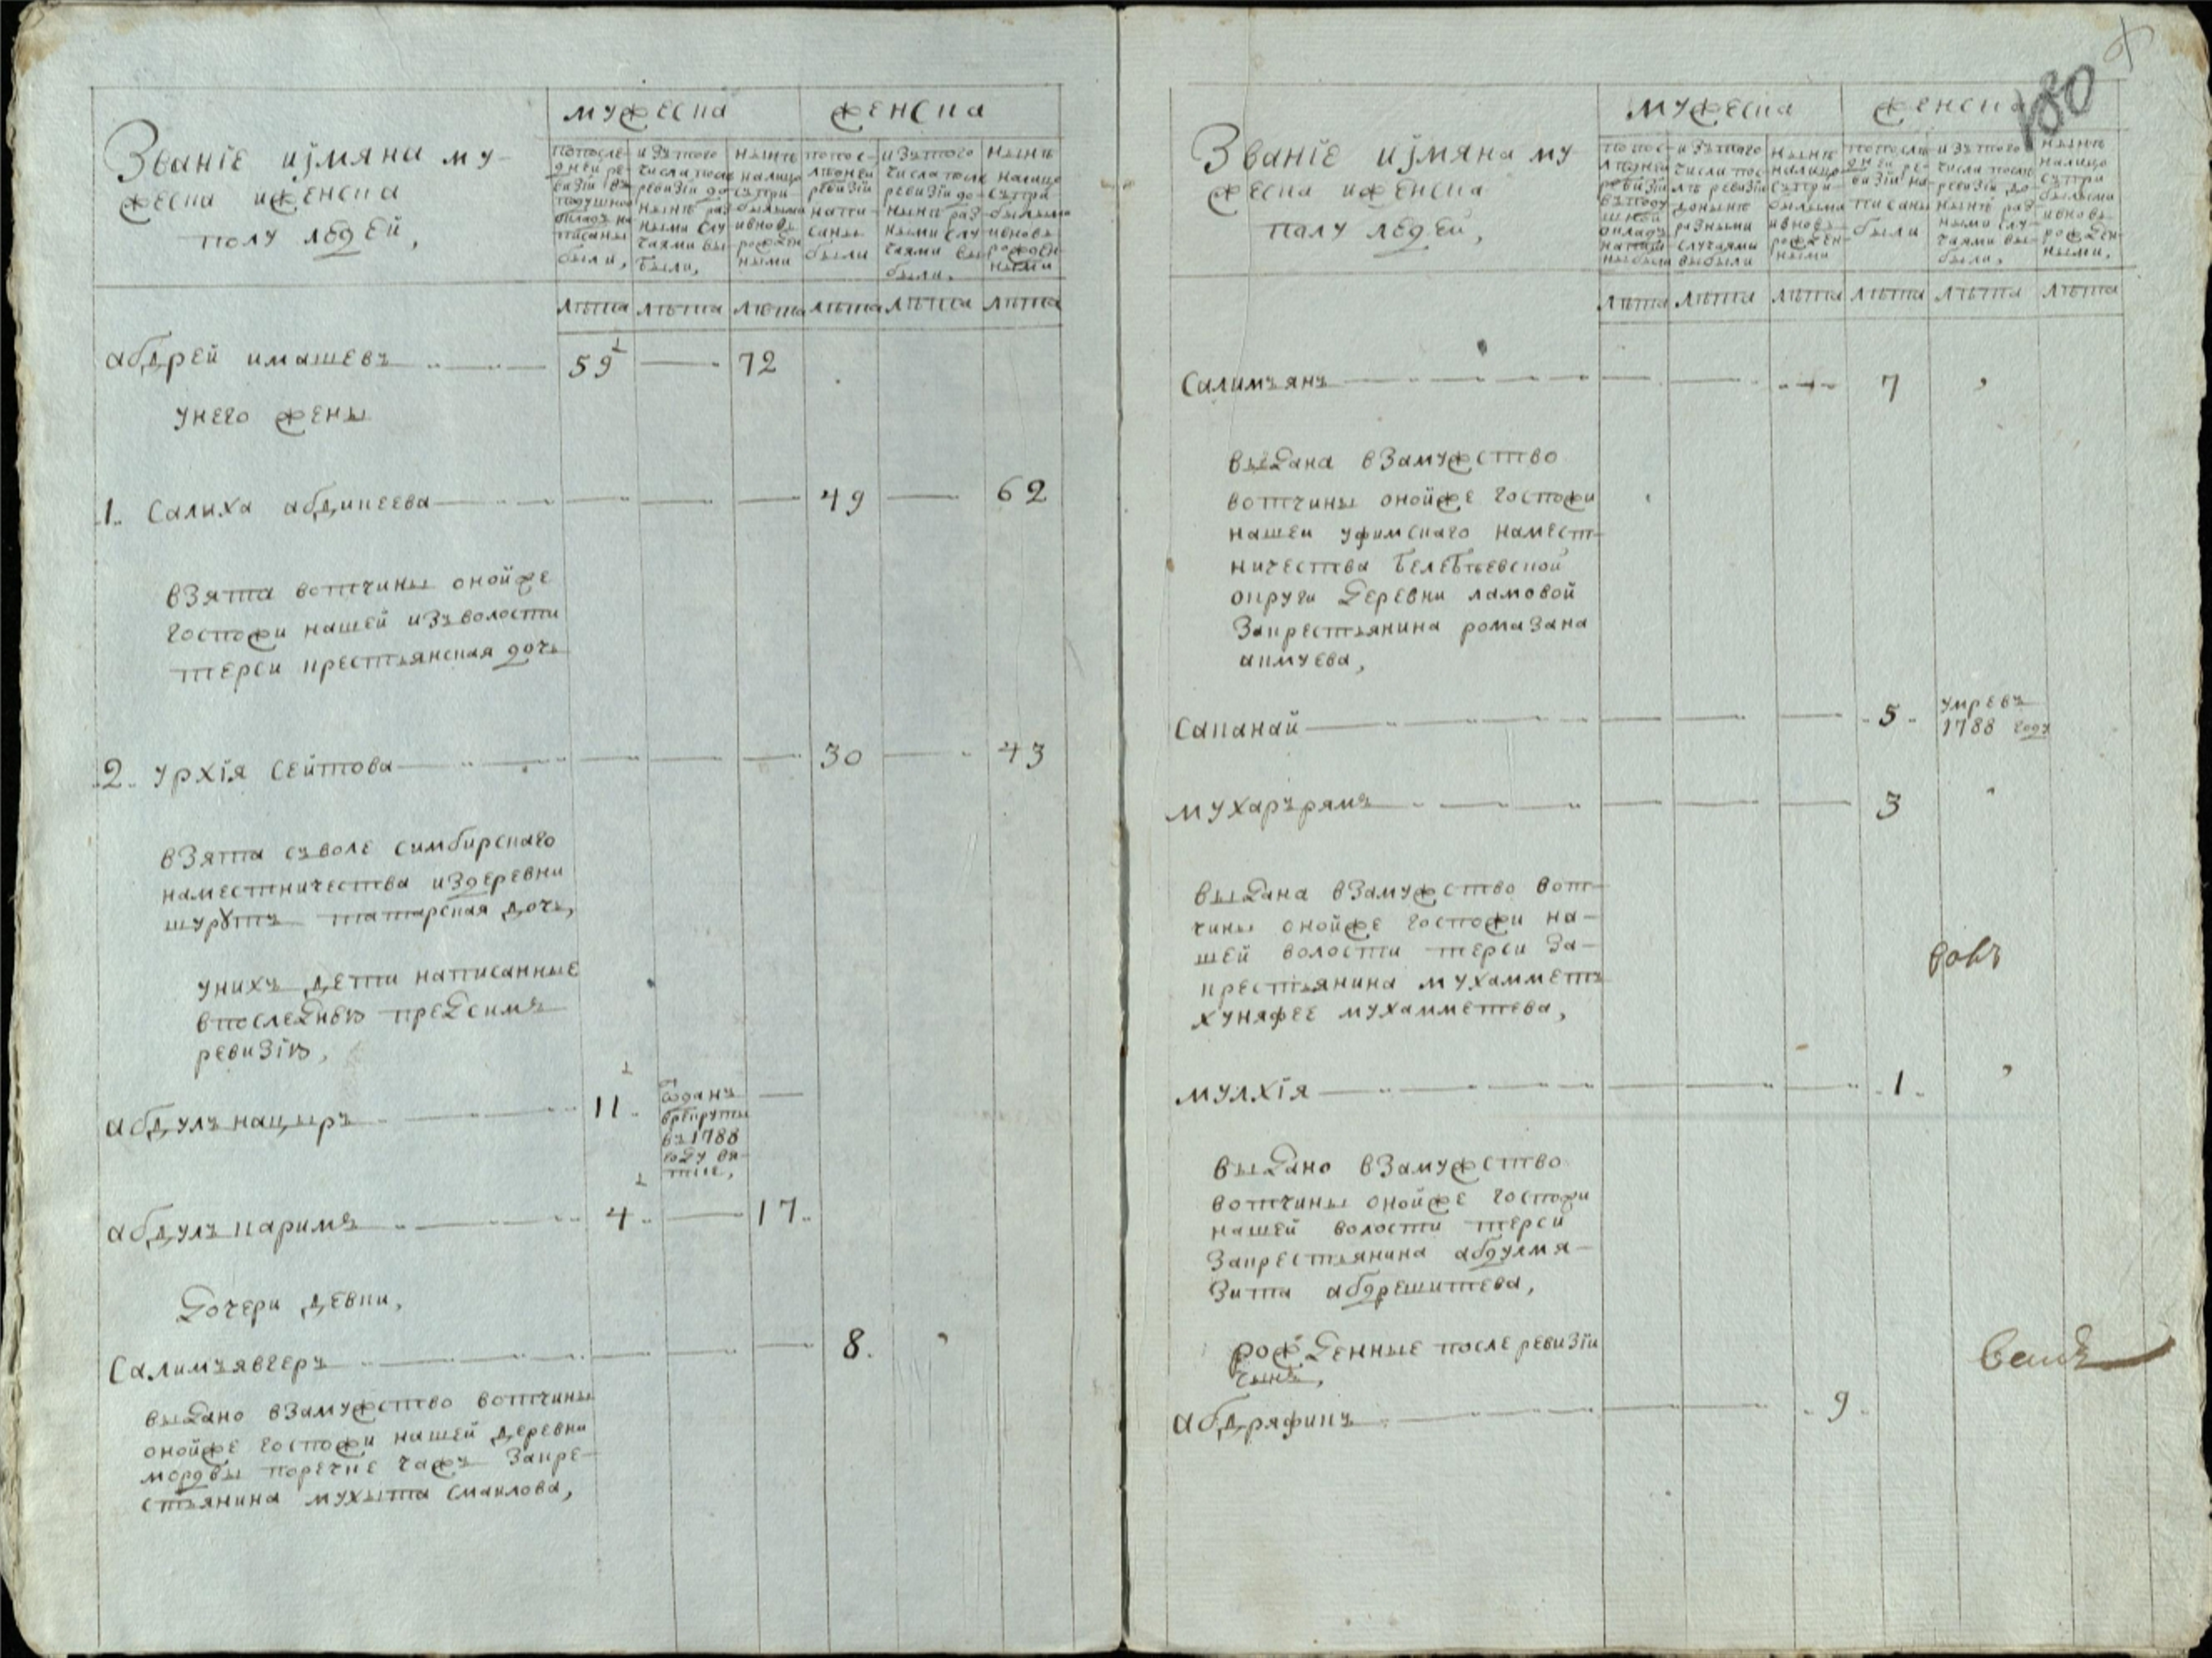 мужеска
женска
Званїе иjмяна му-
жеска иженска
полу людей,
попосле-
дней ре-
визїи въ
подушной
окладъ на
писаны
были,
изътого
числа после
ревизїи до
нынѣ раз-
ными слу
чаями вы-
были,
нынѣ
налицо
съпри
былыми
ивновь
рожден
ными
попос-
лѣдней
ревизїи
напи-
саны
были
изътого
числа после
ревизїи до-
нынѣ раз-
ными слу-
чаями вы
были.
нынѣ
налицо
съпри
былыми
ивновь
рожден-
ными
лѣта лѣта лѣта лѣта лѣта лѣта
абдрей имашевъ 59 72
унего жены
1. Салиха абдикеева 49 62
взята вотчины онойже
госпожи нашей изъволости
терси крестьянская дочь
2. урхїя сейтова 30 43
взята съволе симбирскаго
наместничества издеревни
шурутъ татарская дочь,
унихъ дети написанные
впоследнѣю предсимъ
ревизїю,
абдулънацыръ 11. отданъ
врекруты
въ1788
году вя-
тке,
абдулъкаримъ 4. 17.
дочери девки,
Салимъявгеръ 8.
выдано взамужство вотчины
онойже госпожи нашей деревни
мордвы поречке чажъ закре-
стьянина мухыта смаилова,
мужеска
женска
130
Званїе иjмяна му
жеска иженска
полу людей,
попос-
лѣдней
ревизїи
въподу
шной
окладъ
написа
ны были
изътого
числа пос-
лѣ ревизїи
донынѣ
разными
случаями
выбыли
нынѣ
налицо
съпри-
былыми
ивновь
рожден-
ными
попослѣ
дней ре-
визїи на-
писаны
были
изътого
числа после
ревизїи до-
нынѣ раз
ными слу-
чаями вы-
были,
нынѣ
налицо
съпри
былыми
ивновь
рожден-
ными,
лѣта лѣта лѣта лѣта лѣта лѣта
Салимъянъ 7
выдана взамужство
вотчины онойже госпожи
нашей уфимскаго намест-
ничества белебѣевской
округи деревни ламовой
закрестьянина ромазана
акмуева,
сапанай 5. умревъ
1788 году
мухарърямъ 3
выдана взамужство вот-
чины онойже госпожи на-
шей волости терси за-
крестьянина мухамметъ
хуняфее мухамметева,
мулхїя 1.
выдано взамужство
вотчины онойже госпожи
нашей волости терси
закрестьянина абдулмя-
зита абдрешитева,
рожденные после ревизїи
сынъ,
абдряфикъ 9.